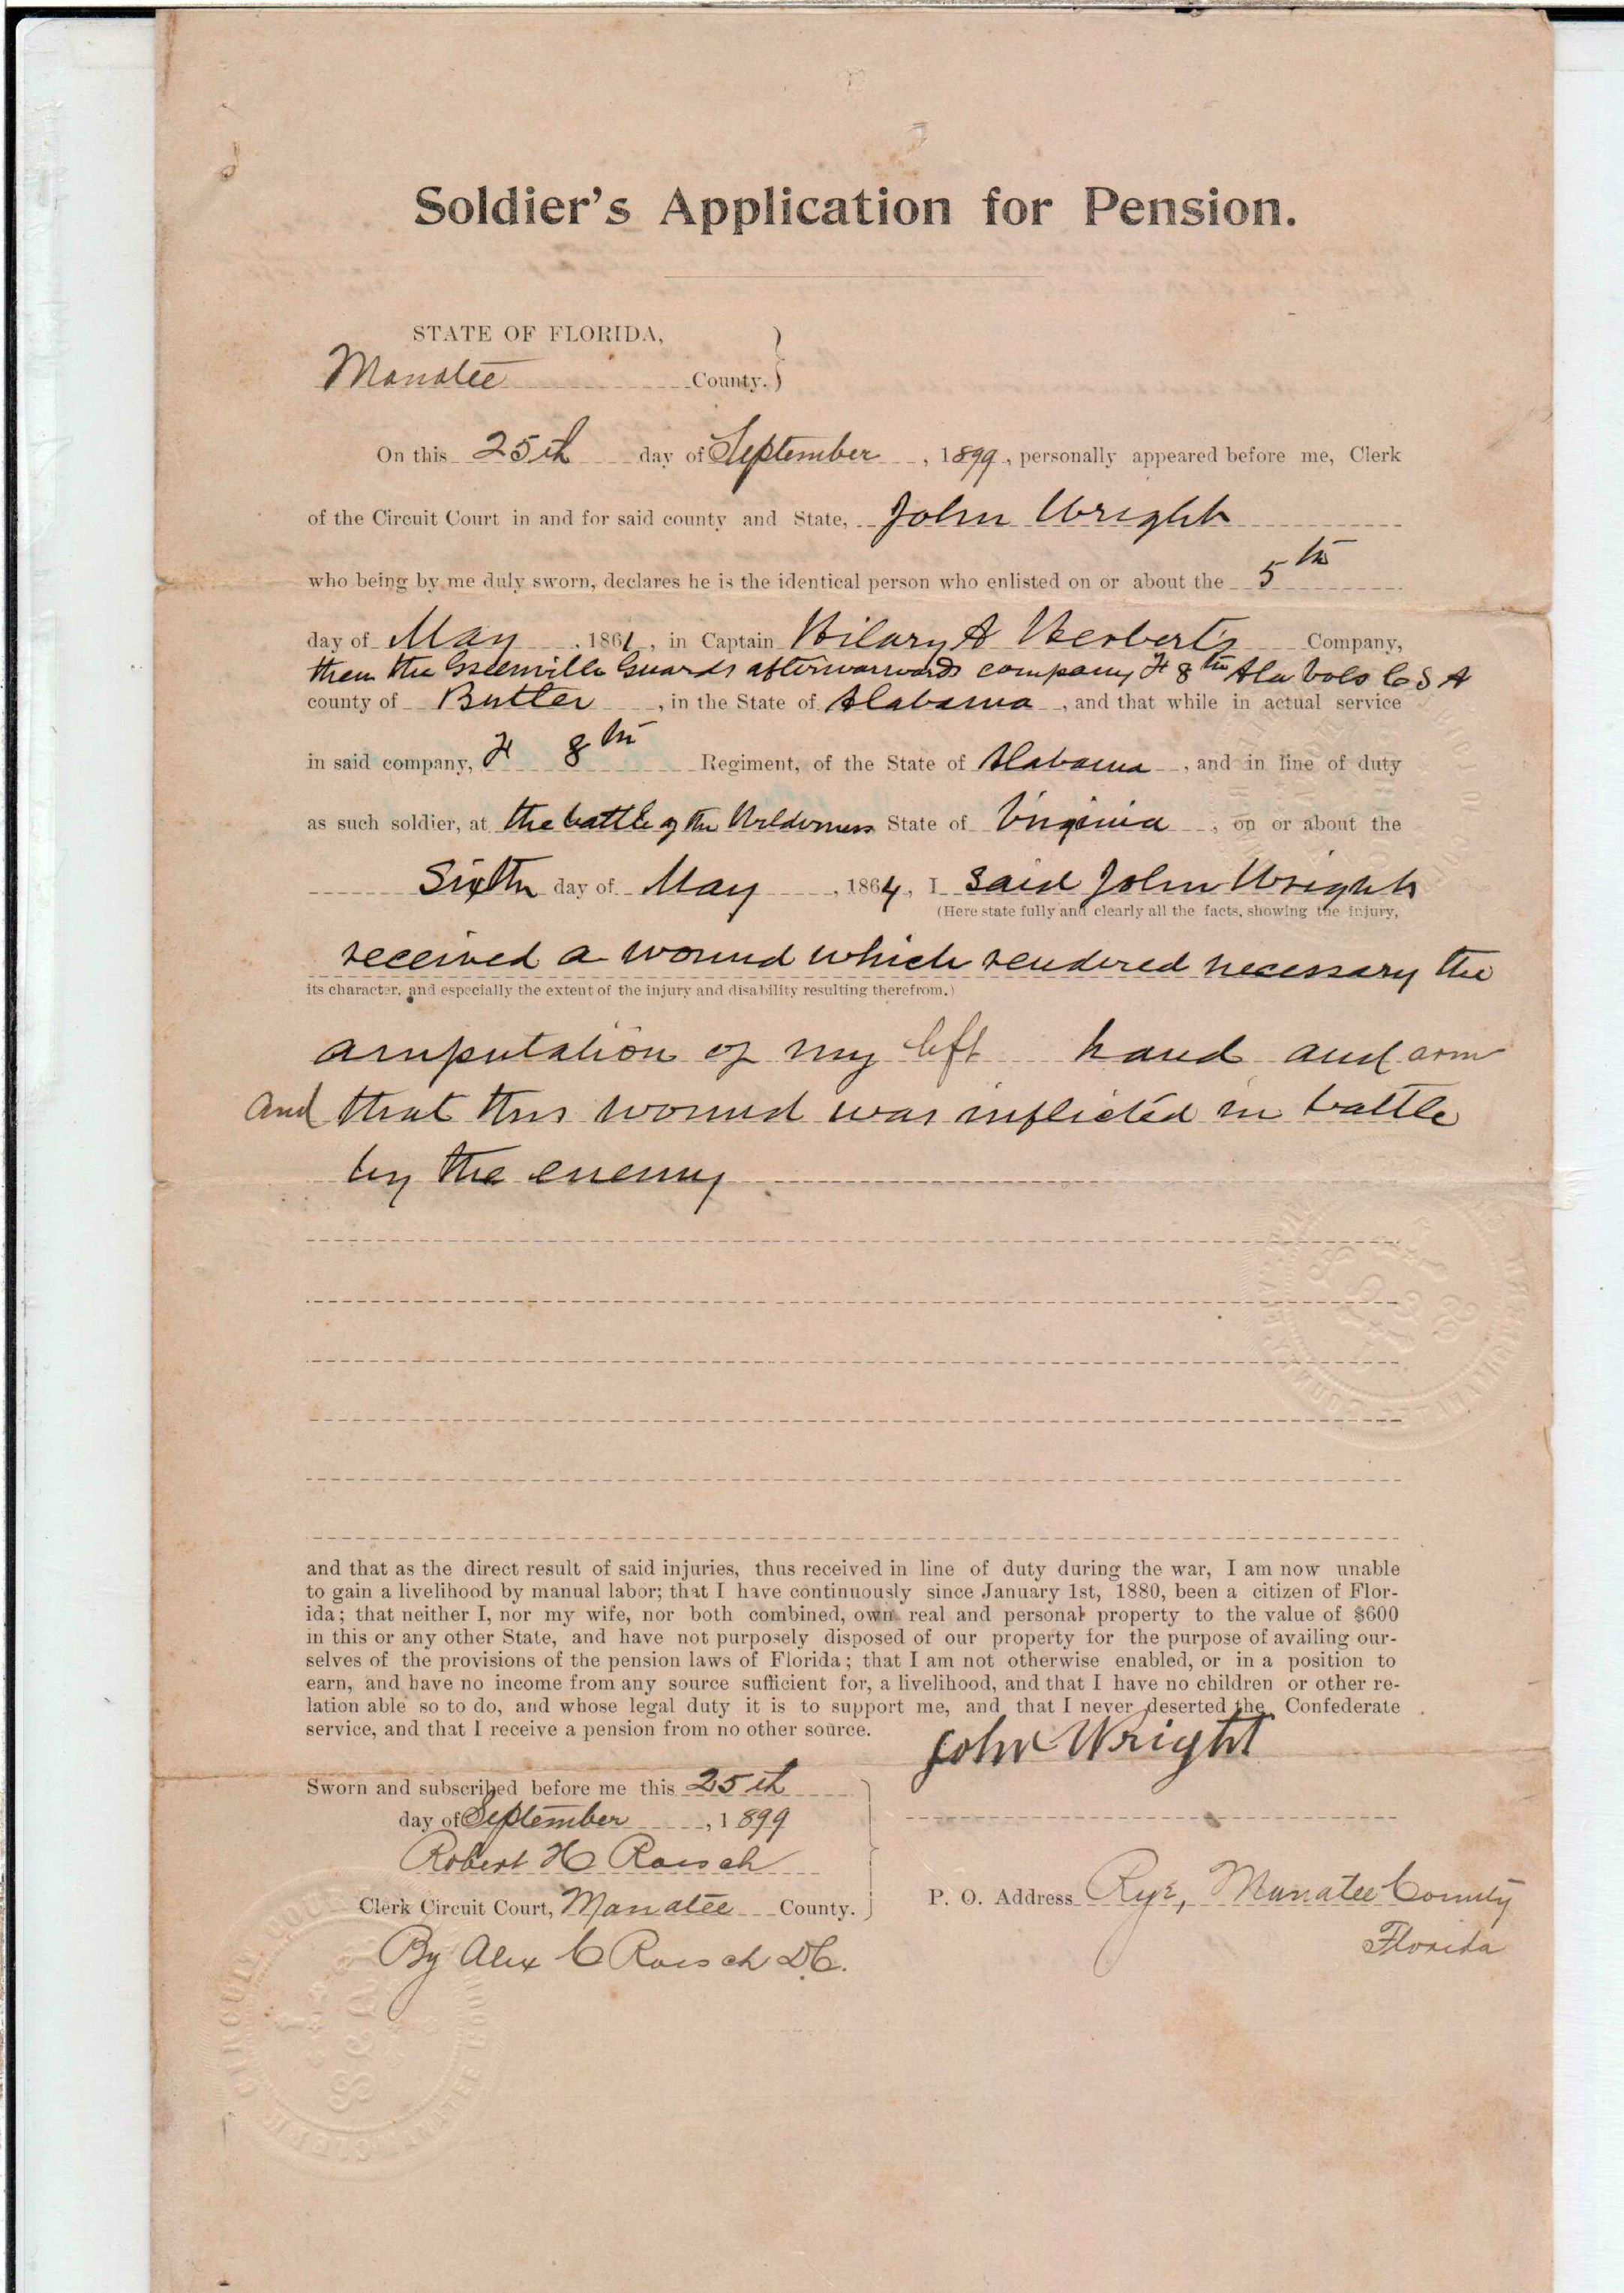 Soldier's Application for Pension.
STATE OF FLORIDA,
Manatee County.
On this 25th day of September, 1899, personally appeared before me, Clerk
of the Circuit Court in and for said county and State, John Wright
who being by me duly sworn, declares he is the identical person who enlisted on or about the 5th
day of May, 1861, in Captain Hilary A Herbert's Company,
then the Greenville Guards afterwarwards company F 8th Ala Vols C S A
county of Butler, in the State of Alabama, and that while in actual service
in said company, F 8th Regiment, of the State of Alabama, and in line of duty
as such soldier, at the battle of the Wilderness State of Virginia, on or about the
Sixth day of May, 1864, I said John Wright
(Here state fully and clearly all the facts, showing the injury,
received a wound which rendered necessary the
its character, and especially the extent of the injury and disability resulting therefrom.)
amputation of my left hand and arm
and that this wound was inflicted in battle
by the enemy
and that as the direct result of said injuries, thus received in line of duty during the war, I am now unable
to gain a livelihood by manual labor; that I have continuously since January 1st, 1880, been a citizen of Flor-
ida; that neither I, nor my wife, nor both combined, own real and personal property to the value of $600
in this or any other State, and have not purposely disposed of our property for the purpose of availing our-
selves of the provisions of the pension laws of Florida; that I am not otherwise enabled, or in a position to
earn, and have no income from any source sufficient for, a livelihood, and that I have no children or other re-
lation able so to do, and whose legal duty it is to support me, and that I never deserted the Confederate
service, and that I receive a pension from no other source.
John Wright
Sworn and subscribed before me this 25th
day of September, 1899
Robert H Roesch
Clerk Circuit Court, Manatee County.
By Alex C Roesch D.C.
P. O. Address Rye, Manatee County
Florida